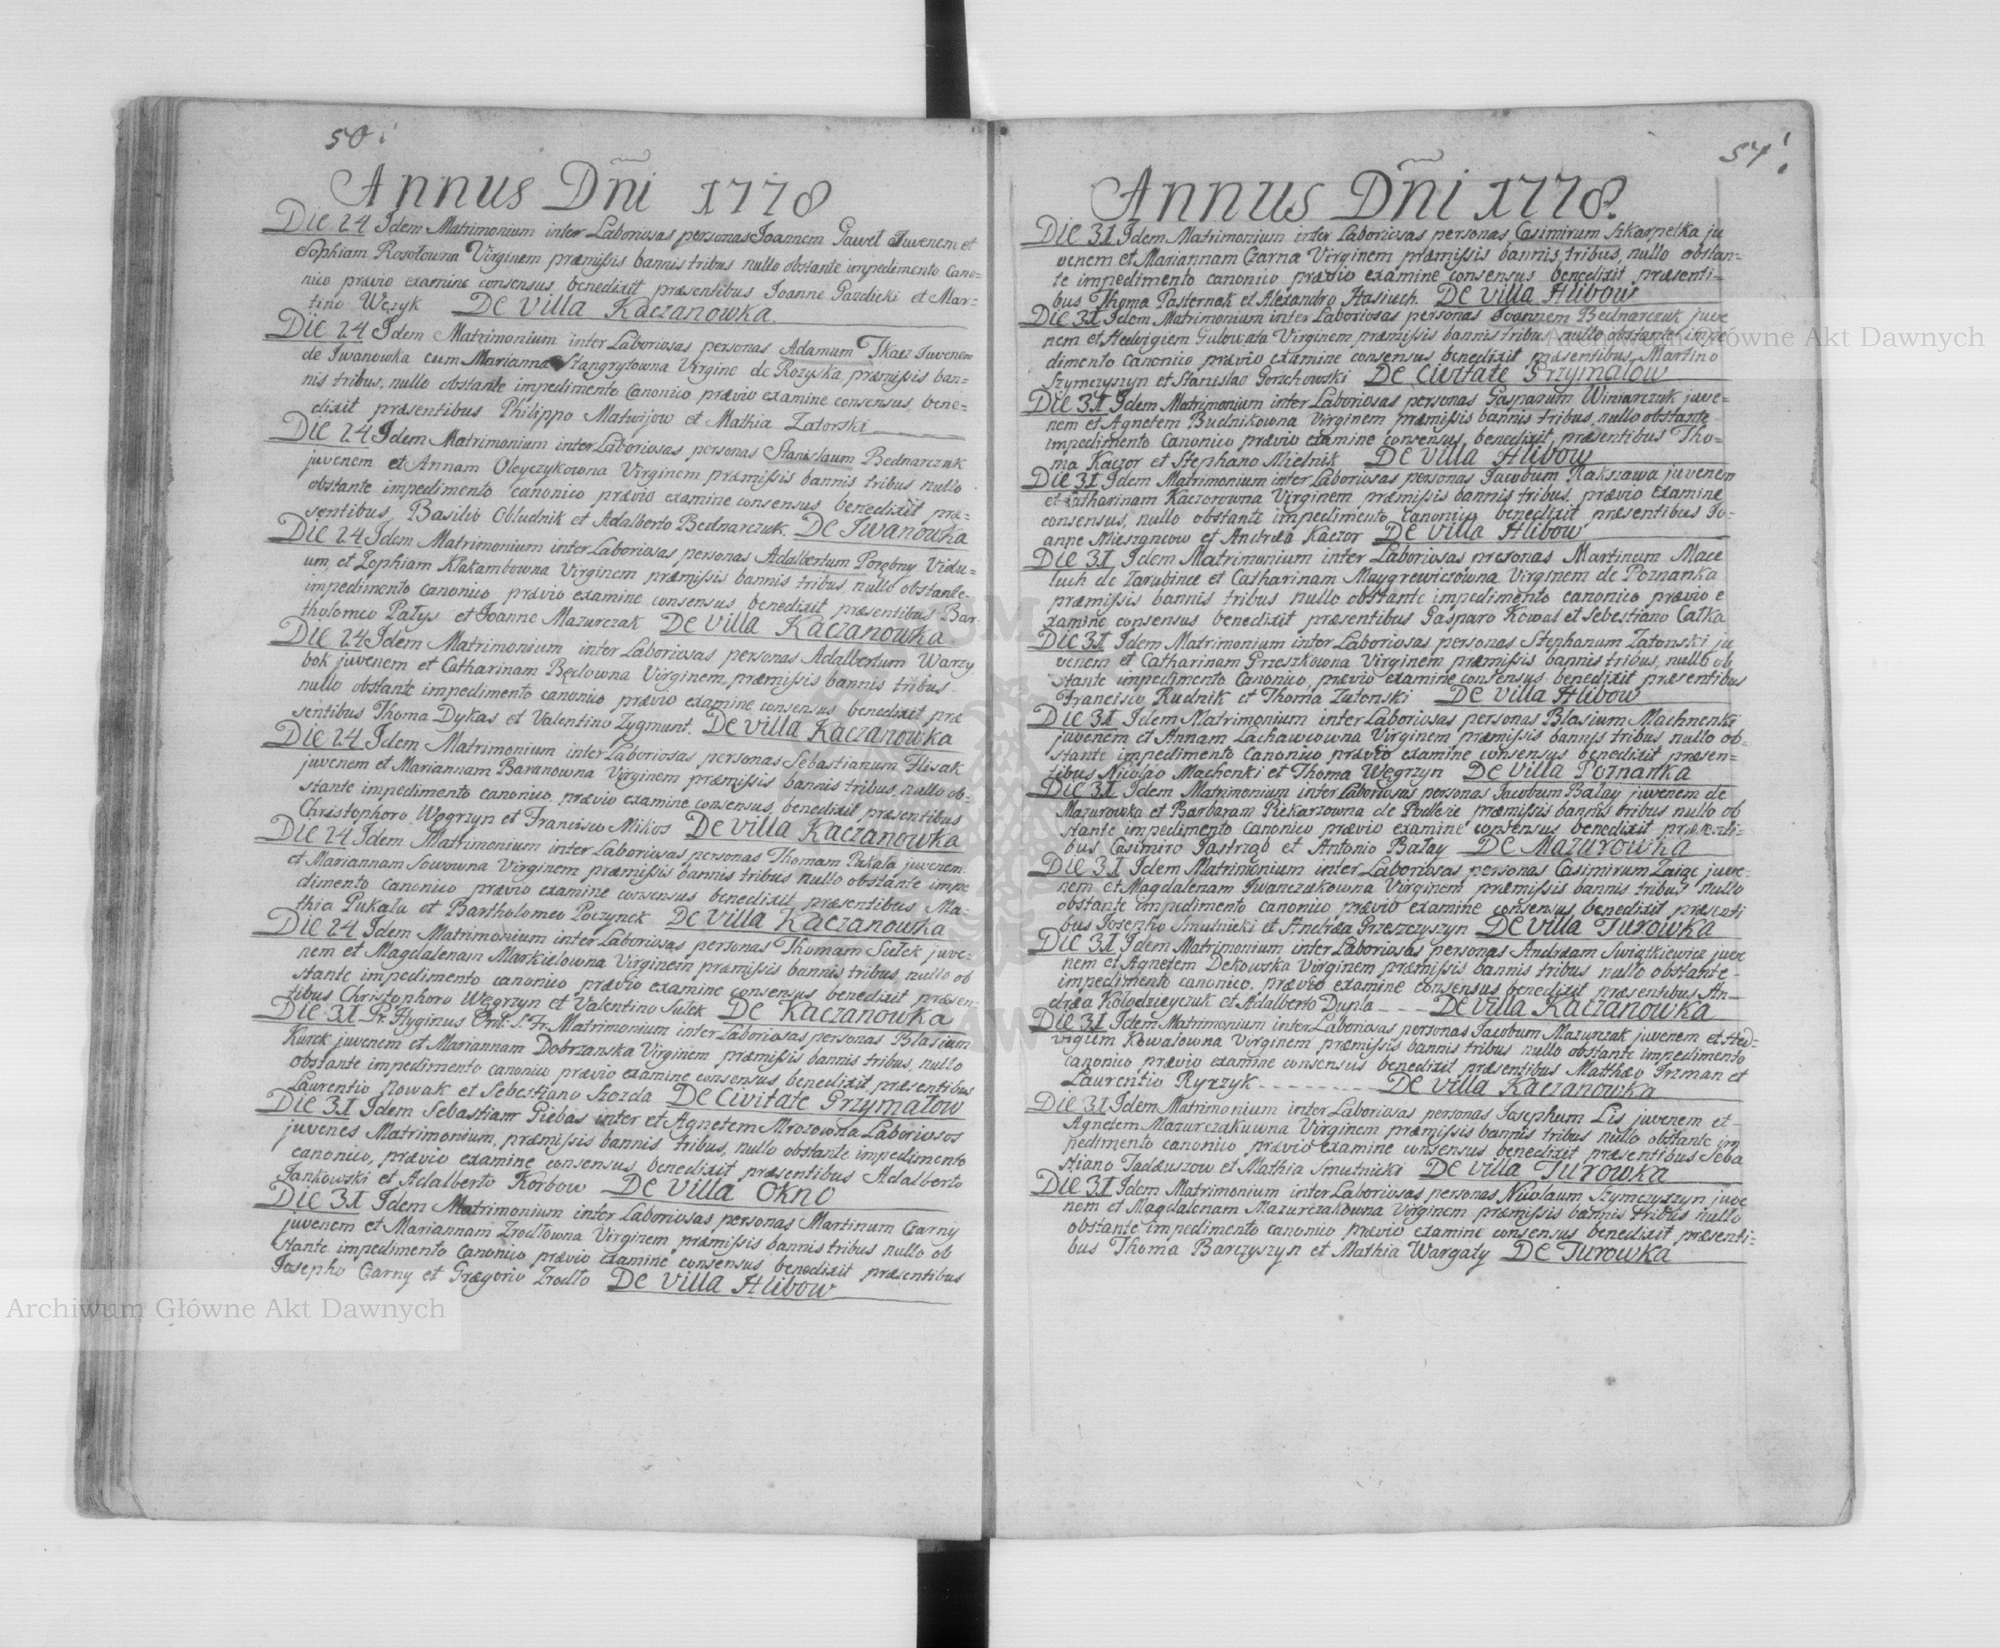 50
Annus Dñi 1778
Die 24 Idem Matrimonium inter Laboriosas personas Joannem Gaweł Juvenem et
Sophiam Rosołowna Virginem præmissis bannis tribus nullo obstante impedimento Cano=
nico prævio examine consensus, benedixit præsentibus Joanne Gazdicki et Mar=
tino Węzyk De Villa Kaczanowka
Die 24 Idem Matrimonium inter Laboriosas personas Adamum Tkacz Juvenem
de Iwanowka cum Marianna Stangrytowna Virgine de Rozyska, præmissis ban=
nis tribus, nullo obstante impedimento Canonico prævio examine consensus, bene=
dixit præsentibus Philippo Matwijow et Mathia Zatorski
Die 24 Idem Matrimonium inter Laboriosas personas Stanislaum Bednarczuk
juvenem et Annam Oleyczykowna Virginem præmissis bannis tribus nullo
obstante impedimento canonico prævio examine consensus benedixit præ=
sentibus Basilio Obludnik et Adalberto Bednarczuk. De Iwanowka
Die 24 Idem Matrimonium inter Laboriosas personas Adalbertum Porębny Vidu=
um, et Zophiam Kłakambowna Virginem præmissis bannis tribus, nullo obstante
impedimento canonico, prævio examine consensus benedixit præsentibus Bar
tholomeo Pałys et Joanne Mazurczak De Villa Kaczanowka
Die 24 Idem Matrimonium inter Laboriosas personas Adalbertum Warzy
bok juvenem et Catharinam Będowna Virginem, præmissis bannis tribus
nullo obstante impedimento canonico prævio examine consensus benedixit præ
sentibus Thoma Dykas et Valentino Zygmunt. De Villa Kaczanowka
Die 24 Idem Matrimonium inter Laboriosas personas Sebastianum Flisak
juvenem et Mariannam Baranowna Virginem præmissis bannis tribus, nullo ob=
stante impedimento canonico, prævio examine consensus, benedixit præsentibus
Christophoro Węgrzyn et Francisco Mikos De Villa Kaczanowka
Die 24 Idem Matrimonium inter Laboriosas personas Thomam Pukała juvenem
et Mariannam Sowowna Virginem præmissis bannis tribus nullo obstante impe
dimento canonico prævio examine consensus benedixit præsentibus Ma=
thia Pukała et Bartholomeo Poczynek De Villa Kaczanowka
Die 24 Idem Matrimonium inter Laboriosas personas Thomam Sułek juve=
nem et Magdalenam Markielowna Virginem præmissis bannis tribus, nullo ob
stante impedimento canonico prævio examine consensus benedixit præsen=
tibus Christophoro Węgrzyn et Valentino Sułek De Kaczanowka
Die 31 Fr. Hyginus Ord. Matrimonium inter Laboriosas personas Blasium
Kurek juvenem et Mariannam Dobrzanska Virginem præmissis bannis tribus, nullo
obstante impedimento canonico prævio examine consensus benedixit præsentibus
Laurentio Nowak et Sebestiano Szozda De Civitate Grzymałow
Die 31 Idem Sebastiam Piebas inter et Agnetem Mrozowna Laboriosos
juvenes Matrimonium, præmissis bannis tribus, nullo obstante impedimento
canonico, prævio examine consensus benedixit præsentibus Adalberto
Jankowski et Adalberto Korbow De Villa Okno
Die 31 Idem Matrimonium inter Laboriosas personas Martinum Czarny
juvenem et Mariannam Zrodłowna Virginem præmissis bannis tribus nullo ob
stante impedimento Canonico prævio examine consensus benedixit præsentibus
Josepho Czarny et Gregorio Zrodło De Villa Hlibow
51
Annus Dñi 1778.
Die 31 Idem Matrimonium inter Laboriosas personas Casimirum Szkarpetka ju
venem et Mariannam Czarna Virginem præmissis bannis tribus, nullo obstan=
te impedimento canonico, prævio examine consensus benedixit præsenti=
bus Thoma Pasternak et Alexandro Stasiuch. De Villa Hlibow
Die 31 Idem Matrimonium inter Laboriosas personas Joannem Bednarczuk juve
nem et Hedvigiem Gulowata Virginem præmissis bannis tribus nullo obstante impe
dimento Canonico prævio examine consensus benedixit præsentibus Martino
Szymczyszyn et Stanislao Gorzchowski De Civitate Grzymałow
Die 31 Idem Matrimonium inter Laboriosas personas Gasparum Winiarczuk juve=
nem et Agnetem Budnikowna Virginem præmissis bannis tribus nullo obstante
impedimento Canonico prævio examine consensus, benedixit præsentibus Tho=
ma Kaczor et Stephano Mielnik De Villa Hlibow
Die 31 Idem Matrimonium inter Laboriosas personas Jacobum Rakszawa juvenem
et Catharinam Kaczorowna Virginem præmissis bannis tribus, prævio examine
consensus, nullo obstante impedimento canonico benedixit præsentibus Jo=
anne Mieszancow et Andrea Kaczor De Villa Hlibow
Die 31 Idem Matrimonium inter Laboriosas presonas Martinum Mace
luch de Zarubince et Catharinam Maygrewiczowna Virginem de Poznanka
præmissis bannis tribus nullo obstante impedimento canonico prævio e
xamine consensus benedixit præsentibus Gasparo Kowal et Sebestiano Całka
Die 31 Idem Matrimonium inter Laboriosas personas Stephanum Zatonski ju
venem et Catharinam Grzeszkowna Virginem præmissis bannis tribus, nullo ob
stante impedimento Canonico, prævio examine consensus benedixit præsentibus
Francisco Rudnik et Thoma Zatonski De Villa Hlibow
Die 31 Idem Matrimonium inter Laboriosas personas Blasium Machnenki
juvenem et Annam Lachawcowna Virginem præmissis bannis tribus, nullo ob=
stante impedimento Canonico prævio examine consensus benedixit præsen=
tibus Nicolao Machenki et Thoma Węgrzyn De Villa Poznanka
Die 31 Idem Matrimonium inter Laboriosas personas Jacobum Bałay juvenem de
Mazurowka et Barbaram Piekarzowna de Podlesie præmissis bannis tribus nullo ob
stante impedimento Canonico prævio examine consensus benedixit præsenti=
bus Casimiro Jastrząb et Antonio Bałay De Mazurowka
Die 31 Idem Matrimonium inter Laboriosas personas Casimirum Zaige juve=
nem et Magdalenam Iwanczukowna Virginem præmissis bannis tribus nullo
obstante impedimento canonico prævio examine consensus benedixit præsenti
bus Josepho Smutnicki et Andrea Grzeszczyszyn De Villa Turowka
Die 31 Idem Matrimonium inter Laboriosas personas Andream Swiątkiewicz juve
nem et Agnetem Dekowska Virginem præmissis bannis tribus nullo obstante
impedimento canonico, prævio examine consensus benedixit præsentibus An
drea Kołodzieyczuk et Adalberto Dupla De Villa Kaczanowka
Die 31 Idem Matrimonium inter Laboriosas personas Jacobum Mazurczak juvenem et Hed=
vigium Kowalowna Virginem præmissis bannis tribus nullo obstante impedimento
canonico prævio examine consensus benedixit præsentibus Matthæo Irzman et
Laurentio Ryzzyk De Villa Kaczanowka
Die 31 Idem Matrimonium inter Laboriosas personas Josephum Lis juvenem et
Agnetem Mazurczakuwna Virginem præmissis bannis tribus nullo obstante im
pedimento canonico, prævio examine consensus benedixit præsentibus Seba
stiano Tadeuszow et Mathia Smutnicki De Villa Turowka
Die 31 Idem Matrimonium inter Laboriosas personas Nicolaum Szymczyszyn juve
nem et Magdalenam Mazurczakowna Virginem præmissis bannis tribus nullo
obstante impedimento canonico prævio examine consensus benedixit præsenti=
bus Thoma Barczyszyn et Mathia Wargaty De Turowka
Archiwum Główne Akt Dawnych
Główne Akt Dawnych